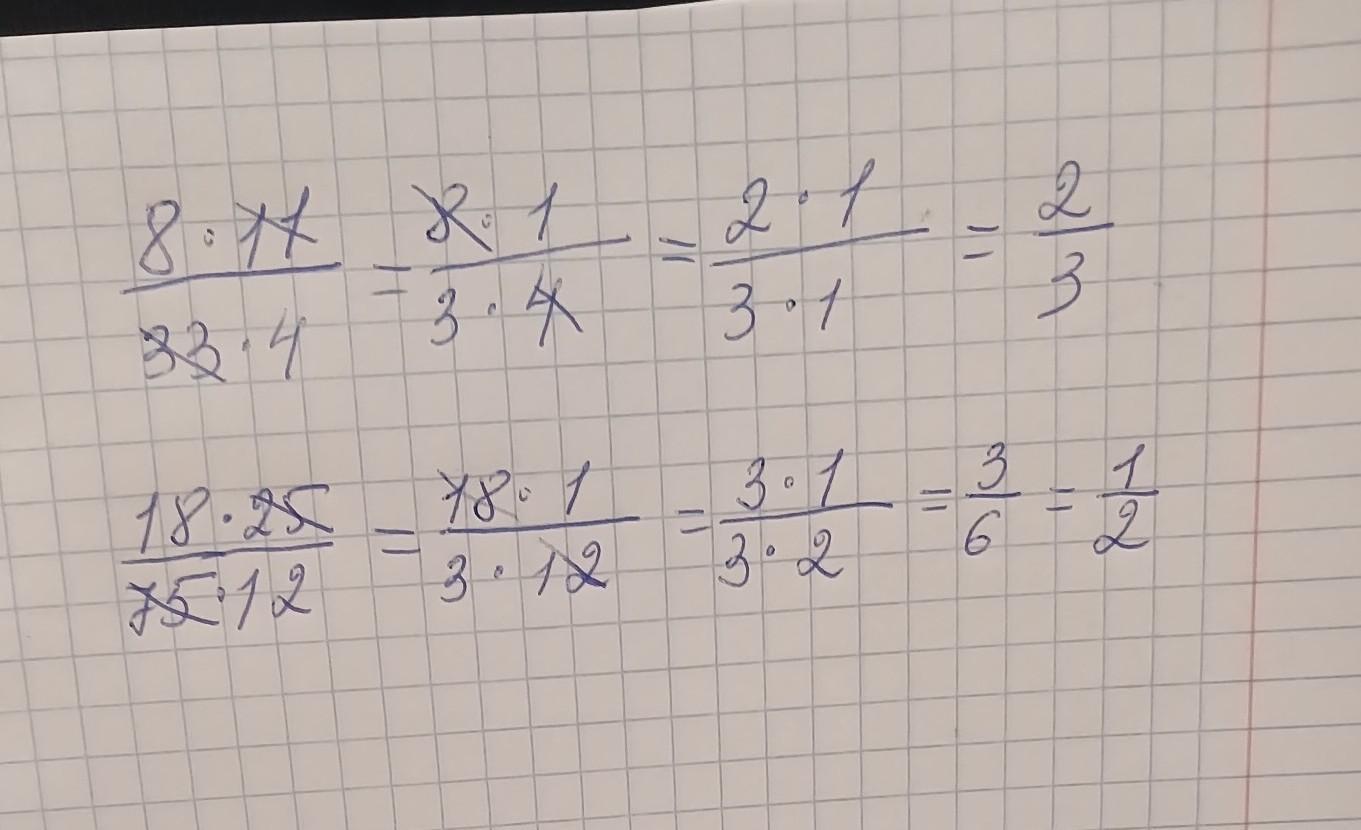 8·11/33·4 = 8·1/3·4 = 2·1/3·1 = 2/3
18·25/75·12 = 18·1/3·12 = 3·1/3·2 = 3/6 = 1/2